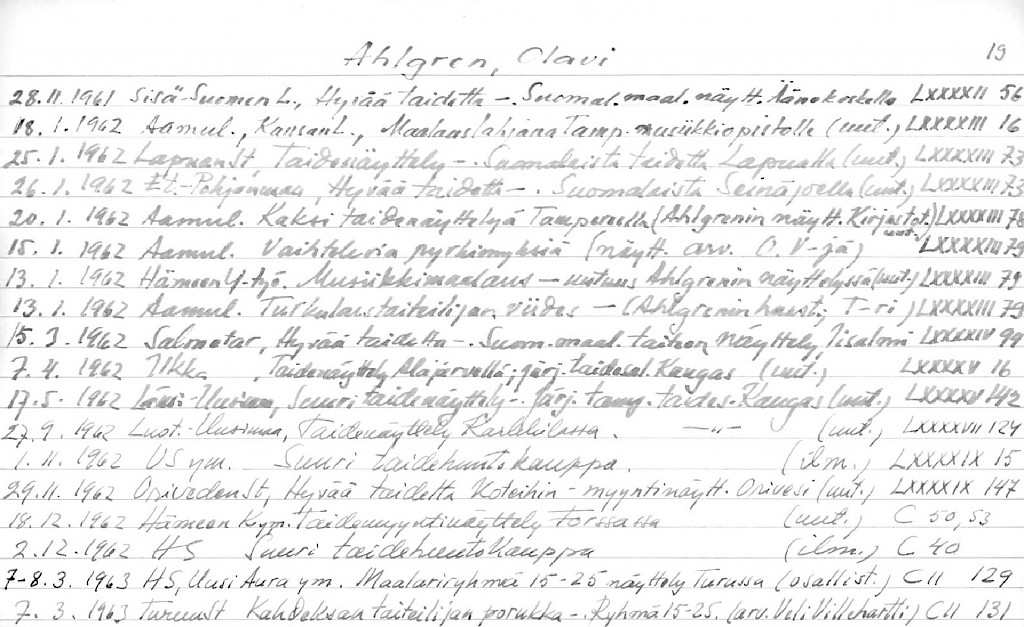 Ahlgren, Olavi 19
28.11.1961 Sisä-Suomen L., Hyvää taidetta -. Suomal. maal. näytt. Äänekoskella LXXXXII 56
18.1.1962 Aamul., KansanL., Maalauslahjana Tamp. musiikkiopistolle (uut.) LXXXXIII 16
25.1.1962 LapuanSt, Taidenäyttely -. Suomalaista taidetta Lapualla (uut.) LXXXXIII 73
26.1.1962 Et.-Pohjanmaa, Hyvää taidetta -. Suomalaista Seinäjoella (uut.) LXXXXIII 73
20.1.1962 Aamul. Kaksi taidenäyttelyä Tampereella (Ahlgrenin näytt. Kirjastot.) uut. LXXXXIII 78
15.1.1962 Aamul. Vaihtelevia pyrkimyksiä (näytt. arv. O. V-jä) LXXXXIII 79
13.1.1962 Hämeen Y-työ. Musiikkimaalaus - uutuus Ahlgrenin näyttelyssä (uut.) LXXXXIII 79
13.1.1962 Aamul. Turkulaistaiteilijan viides - (Ahlgrenin haast.; T-ri) LXXXXIII 79
15.3.1962 Salmetar, Hyvää taidetta -. Suom. maal. taiteen näyttely, Iisalmi LXXXXIV 99
7.4.1962 Ilkka, Taidenäyttely Alajärvellä; järj. taidesal. Kangas (uut.) LXXXXV 16
17.5.1962 Länsi-Uusimaa, Suuri taidenäyttely -. Järj. tamp. taides. Kangas (uut.) LXXXXV 142
27.9.1962 Luot.-Uusimaa, Taidenäyttely Karkkilassa. -"- (uut.) LXXXXVII 124
1.11.1962 US ym. Suuri taidehuutokauppa. (ilm.) LXXXXIX 15
29.11.1962 OrivedenSt, Hyvää taidetta koteihin - myyntinäytt. Orivesi (uut.) LXXXXIX 147
18.12.1962 Hämeen K ym. Taidemyyntinäyttely Forssassa (uut.) C 50, 53
2.12.1962 HS Suuri taidehuutokauppa (ilm.) C 40
7-8.3.1963 HS, Uusi Aura ym. Maalariryhmä 15-25 näyttely Turussa (osallist.) CII 129
7.3.1963 TurunSt Kahdeksan taiteilijan porukka -. Ryhmä 15-25. (arv. Veli Villehartti) CII 131